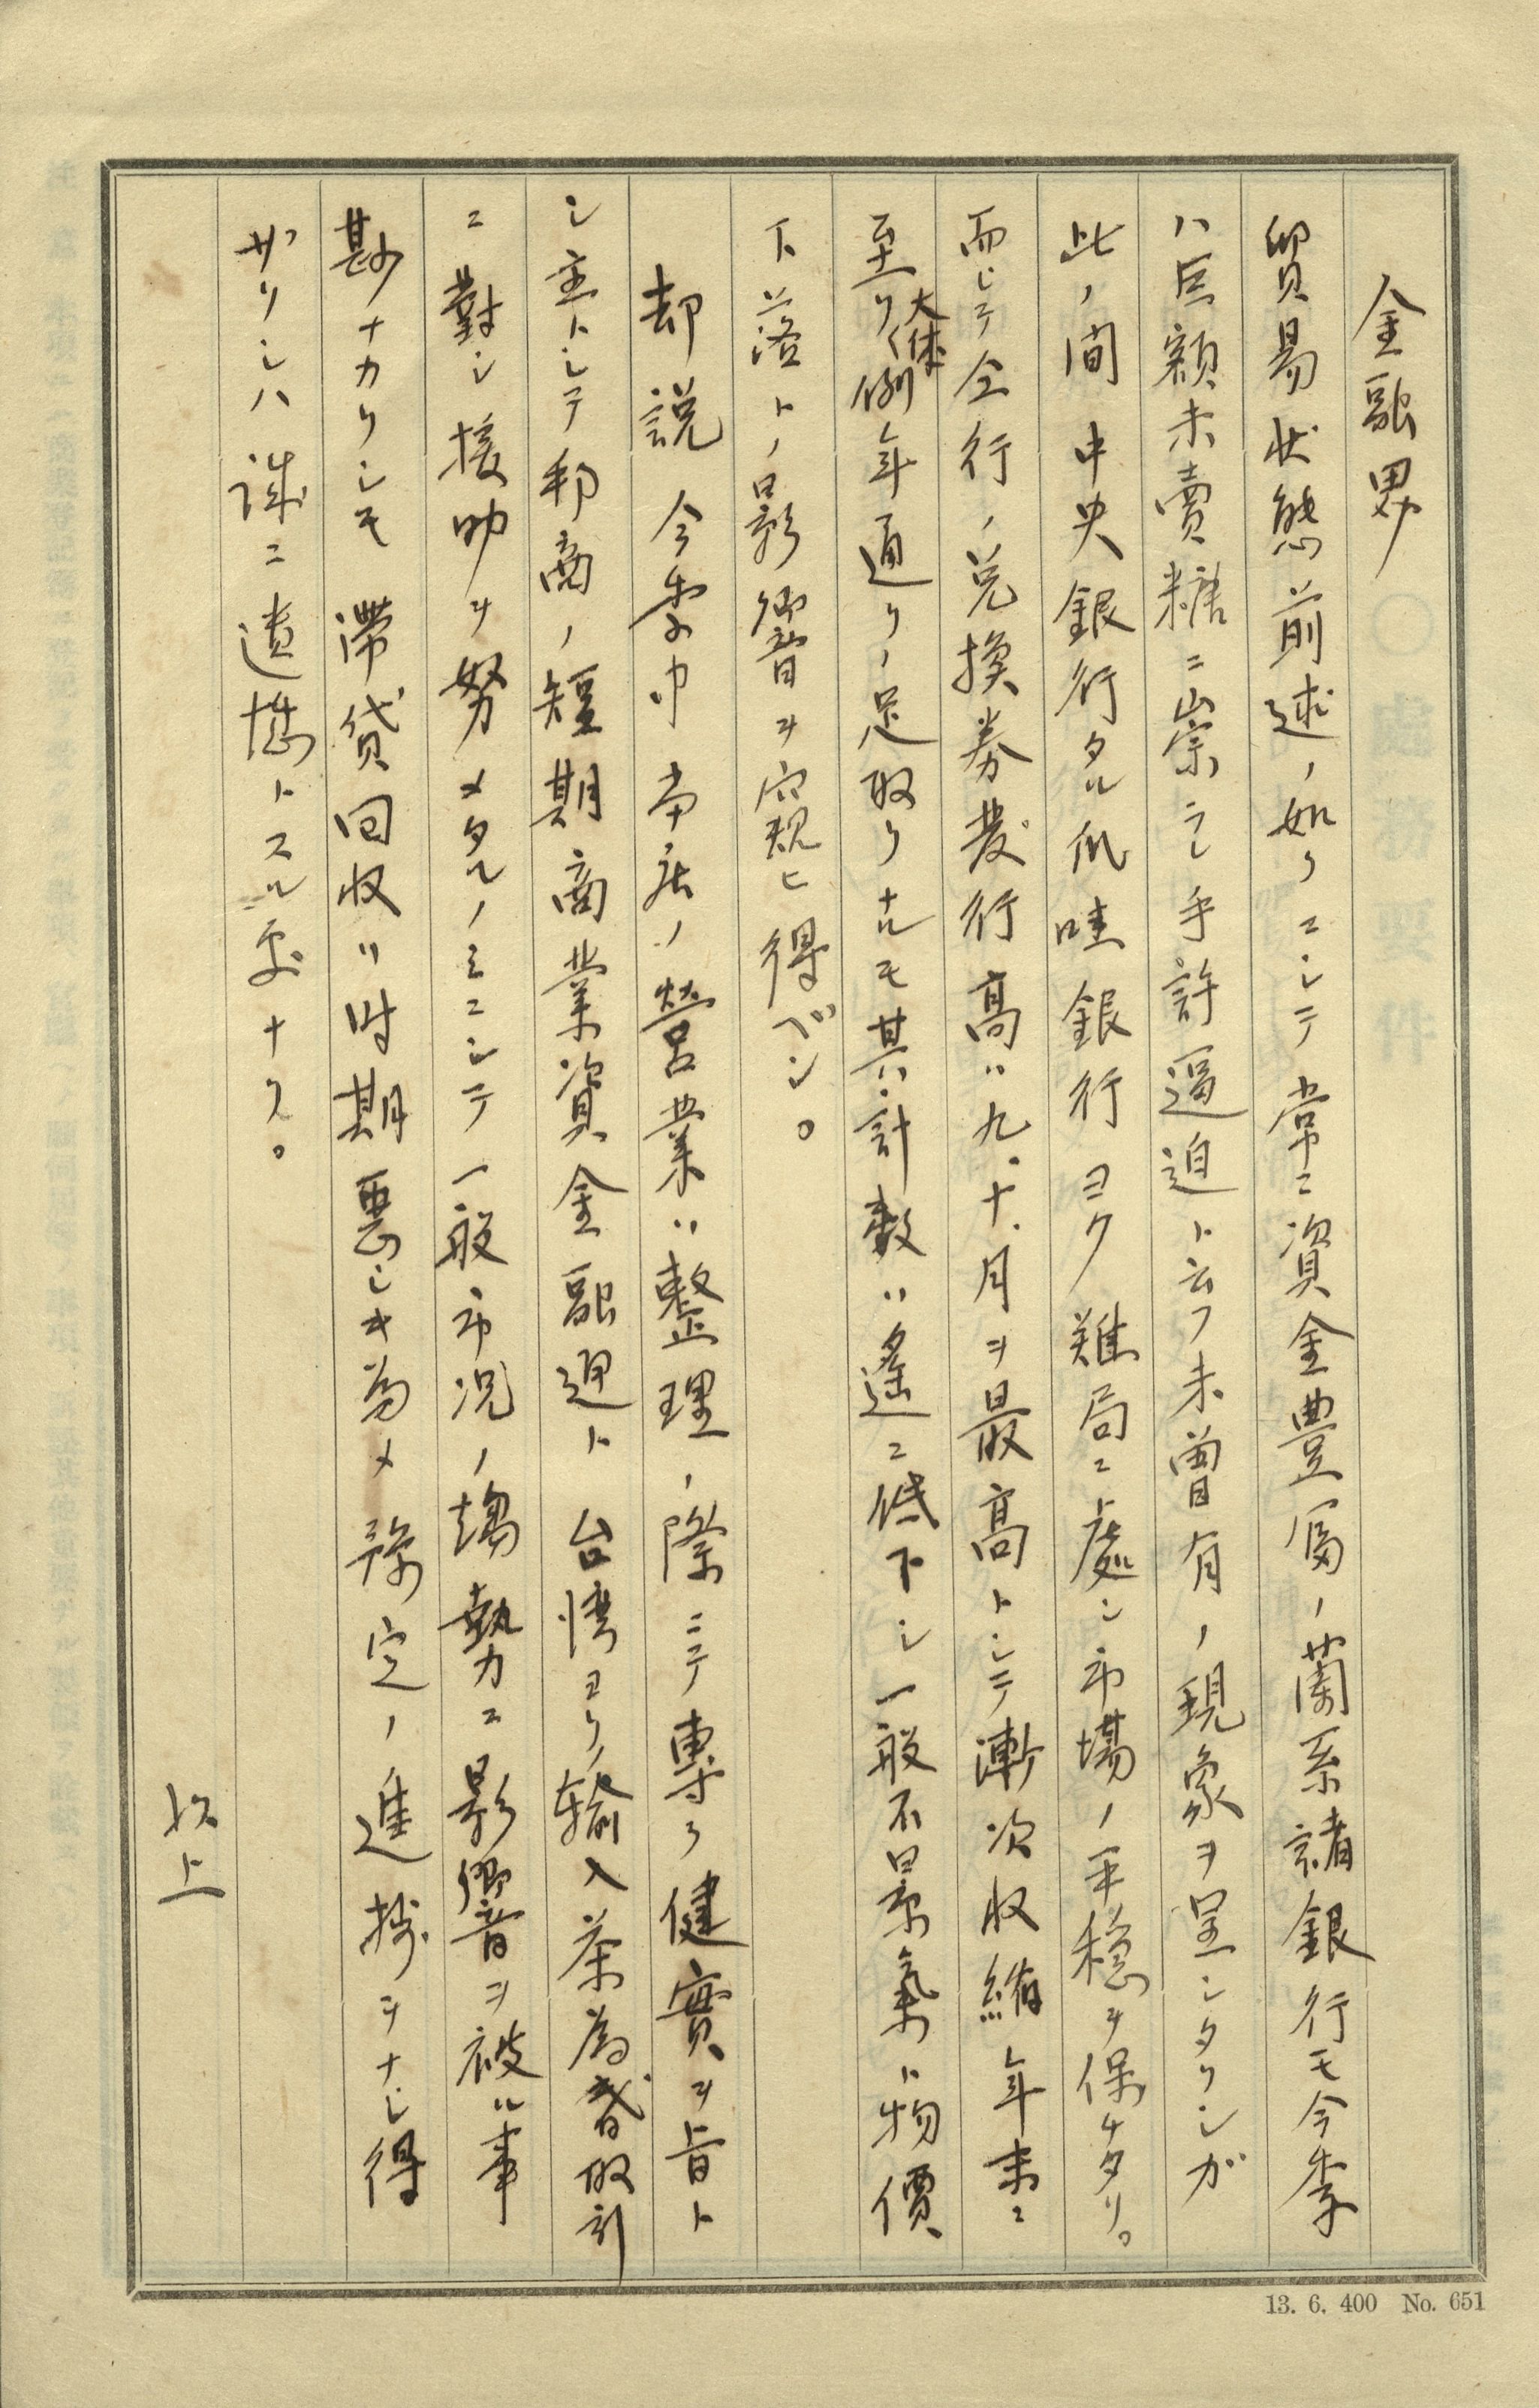 金融界
貿易状態前述ノ如クニシテ常ニ資金豊富ノ蘭系諸銀行モ今季
ハ巨額未賣糖ニ崇ラレ手許逼迫ト云フ未曽有ノ現象ヲ呈シタリシガ
此ノ間中央銀行タル爪哇銀行ヨク難局ニ處シ市場ノ平穏ヲ保チタリ。
而シテ仝行ノ兌換券發行高ハ九、十、月ヲ最高トシテ漸次收縮年末ニ
至リ大体例年通リノ足取リナルモ其ノ計数ハ遙ニ低下シ一般不景氣ト物價
下落トノ影響ヲ窺ヒ得ベシ。
却説今季中当店ノ營業ハ整理ノ際ニテ專ラ健實ヲ旨ト
シ主トシテ邦商ノ短期商業資金融通ト台湾ヨリノ輸入茶為替取引
ニ對シ援助ヲ努メタルノミニシテ一般市況ノ趨勢ニ影響ヲ被ル事
尠ナカリシモ滞貸回收ハ時期悪シキ為メ豫定ノ進捗ヲナシ得
ザリシハ誠ニ遺憾トスル処ナリ。
以上
13. 6. 400 No. 651